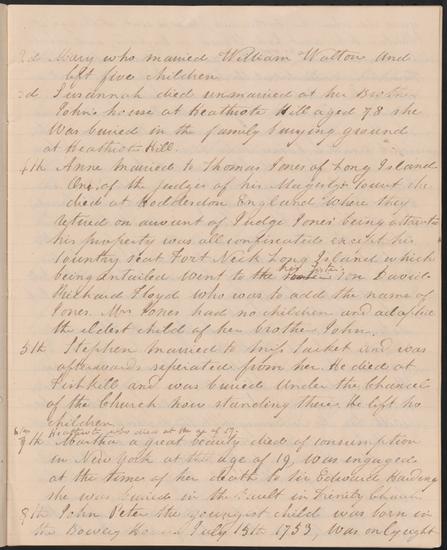 2d Mary who married William Walton and
left five children
3d Susannah died unmarried at her Brother
John's house at Heathcote Hill aged 78 she
was buried in the family burying ground
at Heathcote Hill.
4th Anne married to Thomas Jones of Long Island
One of the judges of his Majesty's Court she
died at Hoddesdon England where they
retired on account of Judge Jones' being attainted
his property was all confiscated except his
Country seat Fort Neck Long Island which
being entailed went to the his sister's son David
Richard Floyd who was to add the name of
Jones. Mrs Jones had no children and adopted
the eldest child of her brother John.
5th Stephen married to Miss Sacket and was
afterwards seperated from her. He died at
Fishkill and was buried under the Chancel
of the Church now standing there. He left no
children
6th Heathcote who died at the age of 17.
7th Martha a great beauty died of consumption
in New York at the age of 19, was engaged
at the time of her death to Sir Edward Harding
she was buried in the Vault in Trinity Church
8th John Peter the youngest child was born in
the Bowery House July 15th 1753, was only eight